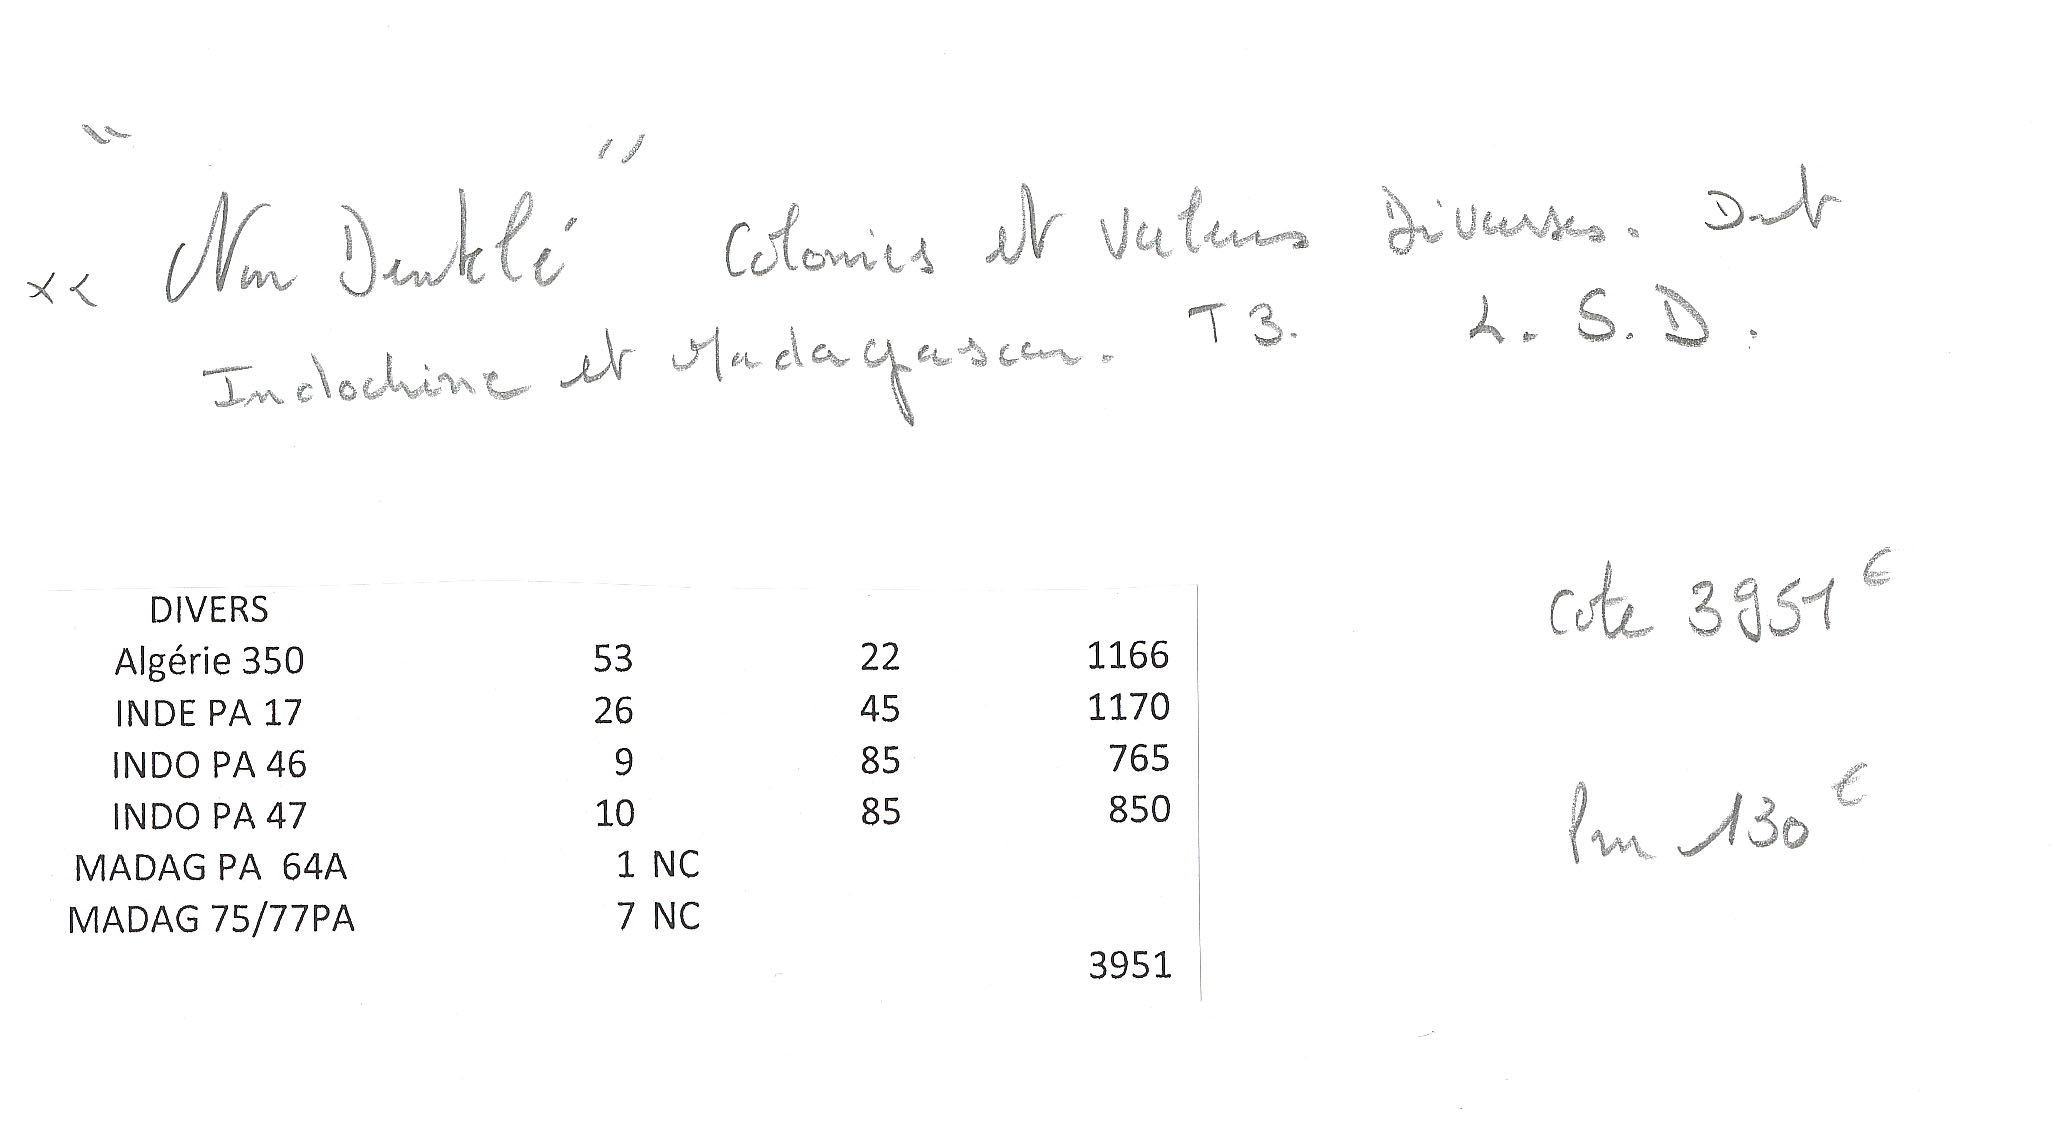 ×× "Non Dentelé" Colonies et Valeurs Diverses. Dont
Indochine et Madagascar. T3. L.S.D.
Cote 3951€
DIVERS
Algérie 350 53 22 1166
INDE PA 17 26 45 1170
INDO PA 46 9 85 765
INDO PA 47 10 85 850
MADAG PA 64A 1 NC
MADAG 75/77PA 7 NC
3951
130€